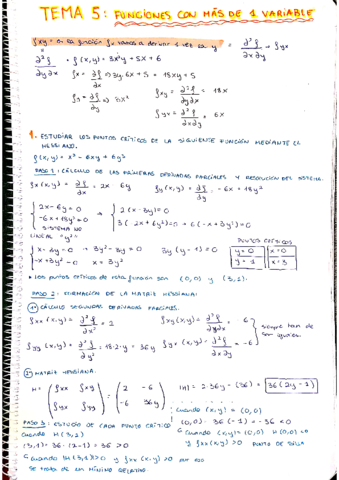 TEMA 5: FUNCIONES CON MÁS DE 1 VARIABLE
fxy = la función f vamos a derivar 1 vez la y = ∂²f/∂x∂y = fyx
∂²f/∂y∂x = f(x,y) = 3x²y + 5x + 6
fx = ∂f/∂x ⇒ 3y·6x + 5 = 18xy + 5
fxy = ∂²f/∂y∂x = 18x
fy = ∂f/∂y ⇒ 3x²
fyx = ∂²f/∂x∂y = 6x
1. ESTUDIAR LOS PUNTOS CRÍTICOS DE LA SIGUIENTE FUNCIÓN MEDIANTE EL
HESSIANO.
f(x,y) = x² - 6xy + 6y³
PASO 1: CÁLCULO DE LAS PRIMERAS DERIVADAS PARCIALES Y RESOLUCIÓN DEL SISTEMA.
fx(x,y) = ∂f/∂x = 2x - 6y fy(x,y) = ∂f/∂y = -6x + 18y²
2x - 6y = 0 → 2(x - 3y) = 0
-6x + 18y² = 0
SISTEMA NO
LINEAL "y²"
x - 3y = 0 → 3y² - 3y = 0 3y(y - 1) = 0
-x + 3y² = 0 x = 3y²
PUNTOS CRÍTICOS
y = 0 x = 0
y = 1 x = 3
• Los puntos críticos de esta función son (0,0) y (3,1).
PASO 2: FORMACIÓN DE LA MATRIZ HESSIANA:
1º CÁLCULO SEGUNDAS DERIVADAS PARCIALES.
fxx(x,y) = ∂²f/∂x² = 2 fxy(x,y) = ∂²f/∂y∂x = -6
fyy(x,y) = ∂²f/∂y² = 18·2·y = 36y fyx(x,y) = ∂²f/∂x∂y = -6
siempre han de
ser iguales.
2º MATRIZ HESSIANA:
H = (fxx fxy) = (2 -6) |H| = 2·36y - (36) = 36(2y - 1)
(fyx fyy) (-6 36y)
cuando (x,y) = (0,0)
PASO 3: ESTUDIO DE CADA PUNTO CRÍTICO
(0,0) = 36(-1) = -36 < 0
cuando H(3,1)
cuando (x,y) = (0,0) H(0,0) < 0
(3,1) = 36·(2-1) = 36 > 0
y fxx(x,y) > 0 PUNTO DE SILLA
cuando H(3,1) > 0 y fxx(x,y) > 0 por eso
Se trata de un MÍNIMO RELATIVO